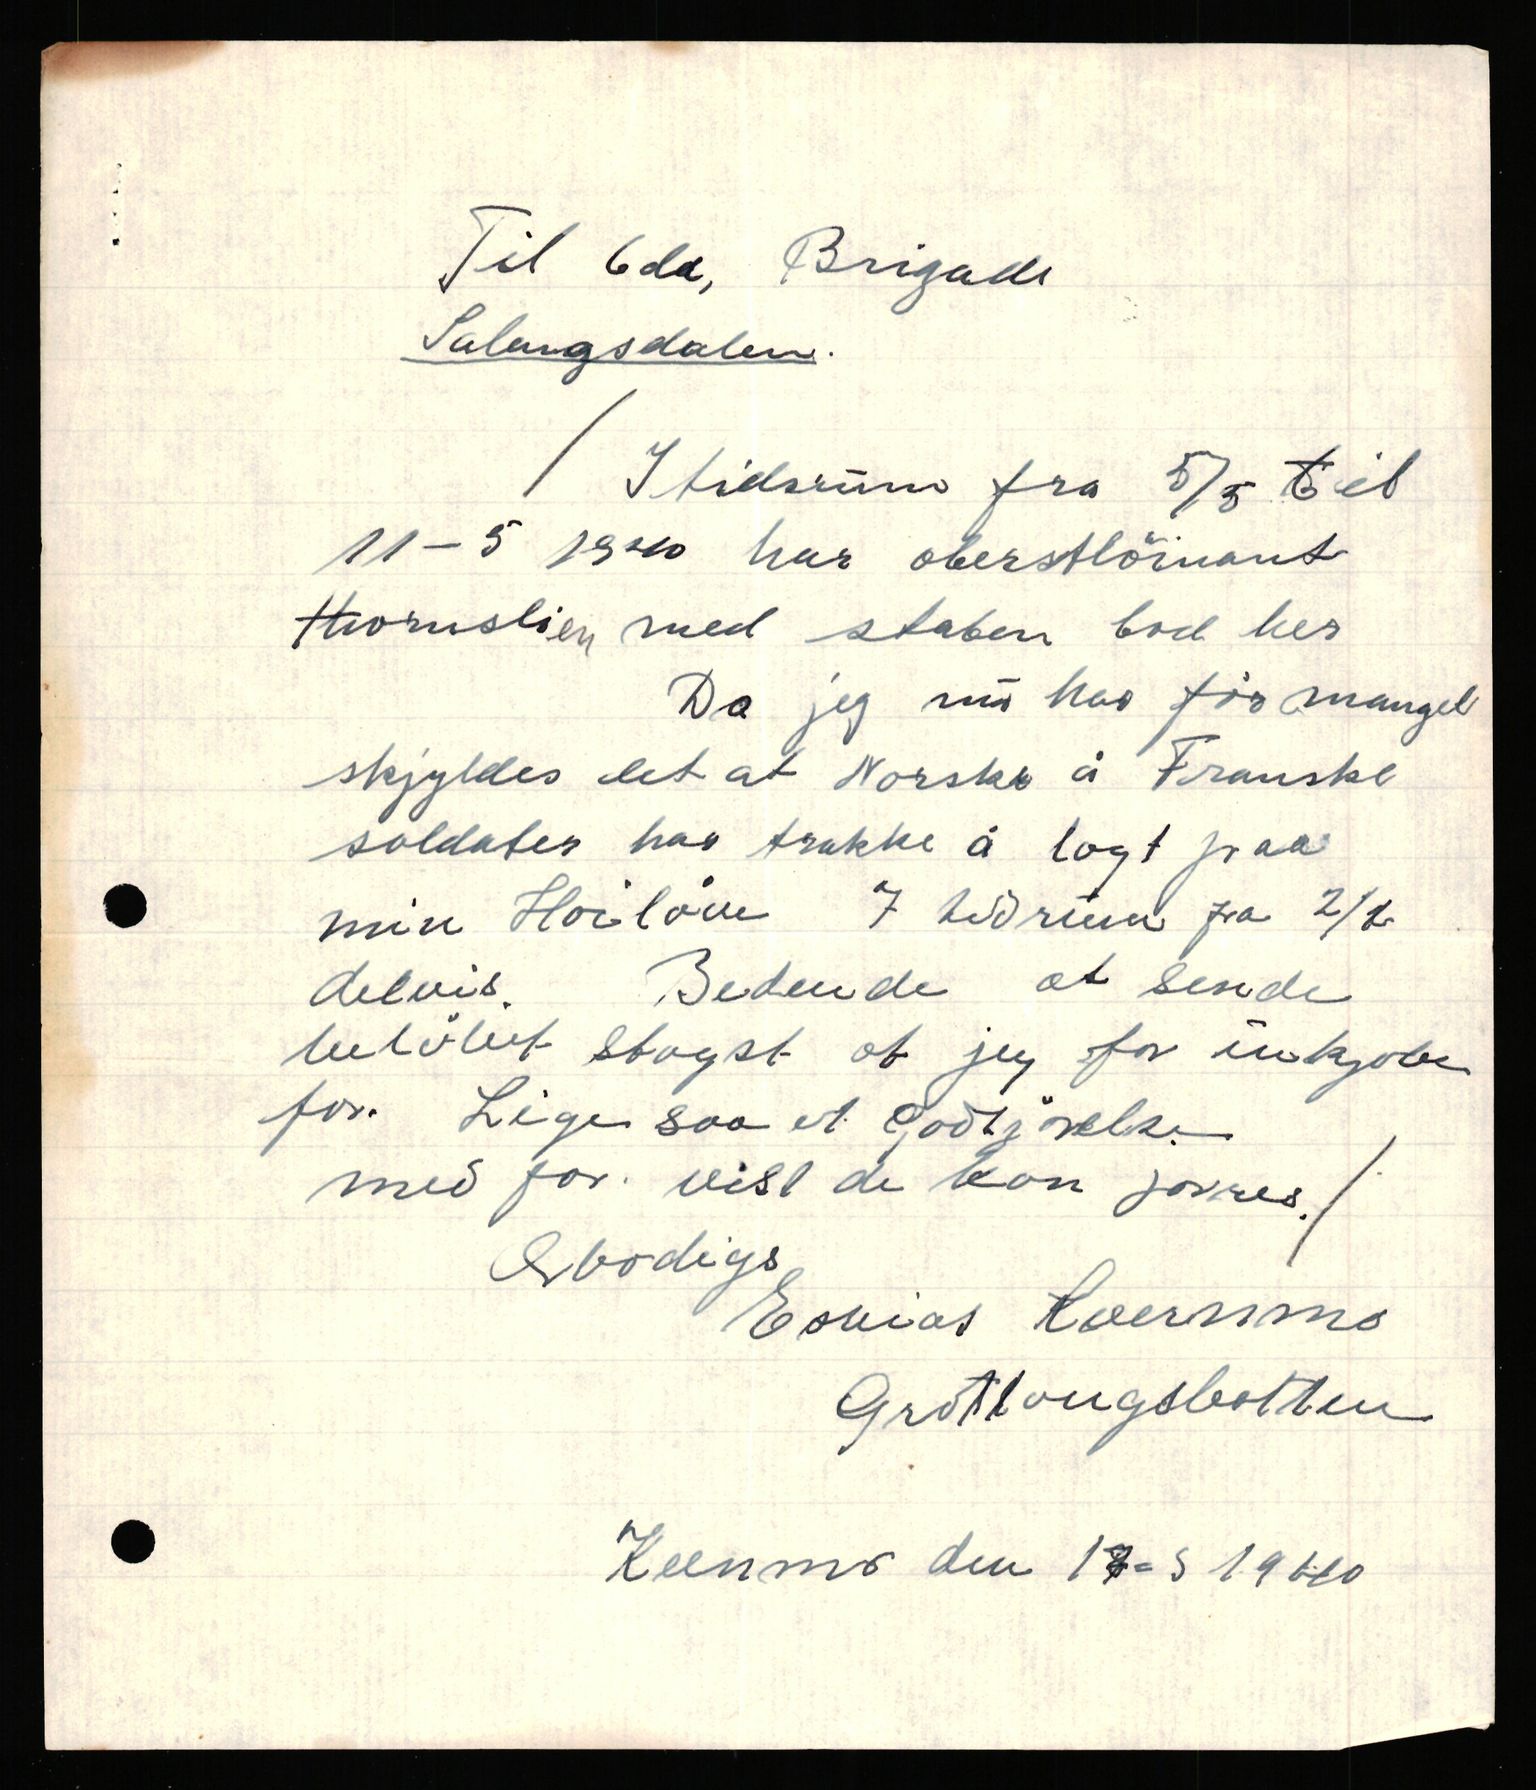 Til 6de, Brigade
Salangsdalen.
I tidsrum fra 5/5 til
11-5 1940 har oberstlöinant
thornslien med staben bod her
Da jeg nu har för mangel
skjyldes det at Norske å Franske
soldater har trakke å logt paa
min Hoilöve I tidrum fra
delvis. Bedende at sende
belöbet at jeg for inkjobe
for. Lige saa et Godtjörelse
med for. vist de kan
Erbodigs
Esaias Kvernmo
botten
Kvernmo den 17-5 1940